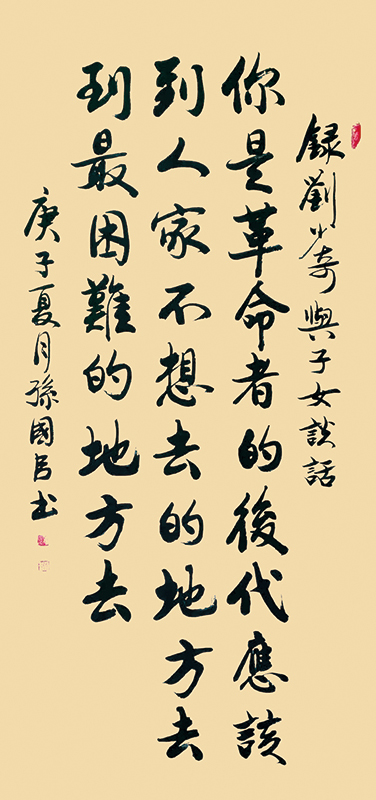 録劉少奇與子女談話
你是革命者的後代應該
到人家不想去的地方去
到最困難的地方去
庚子夏月孫國官書